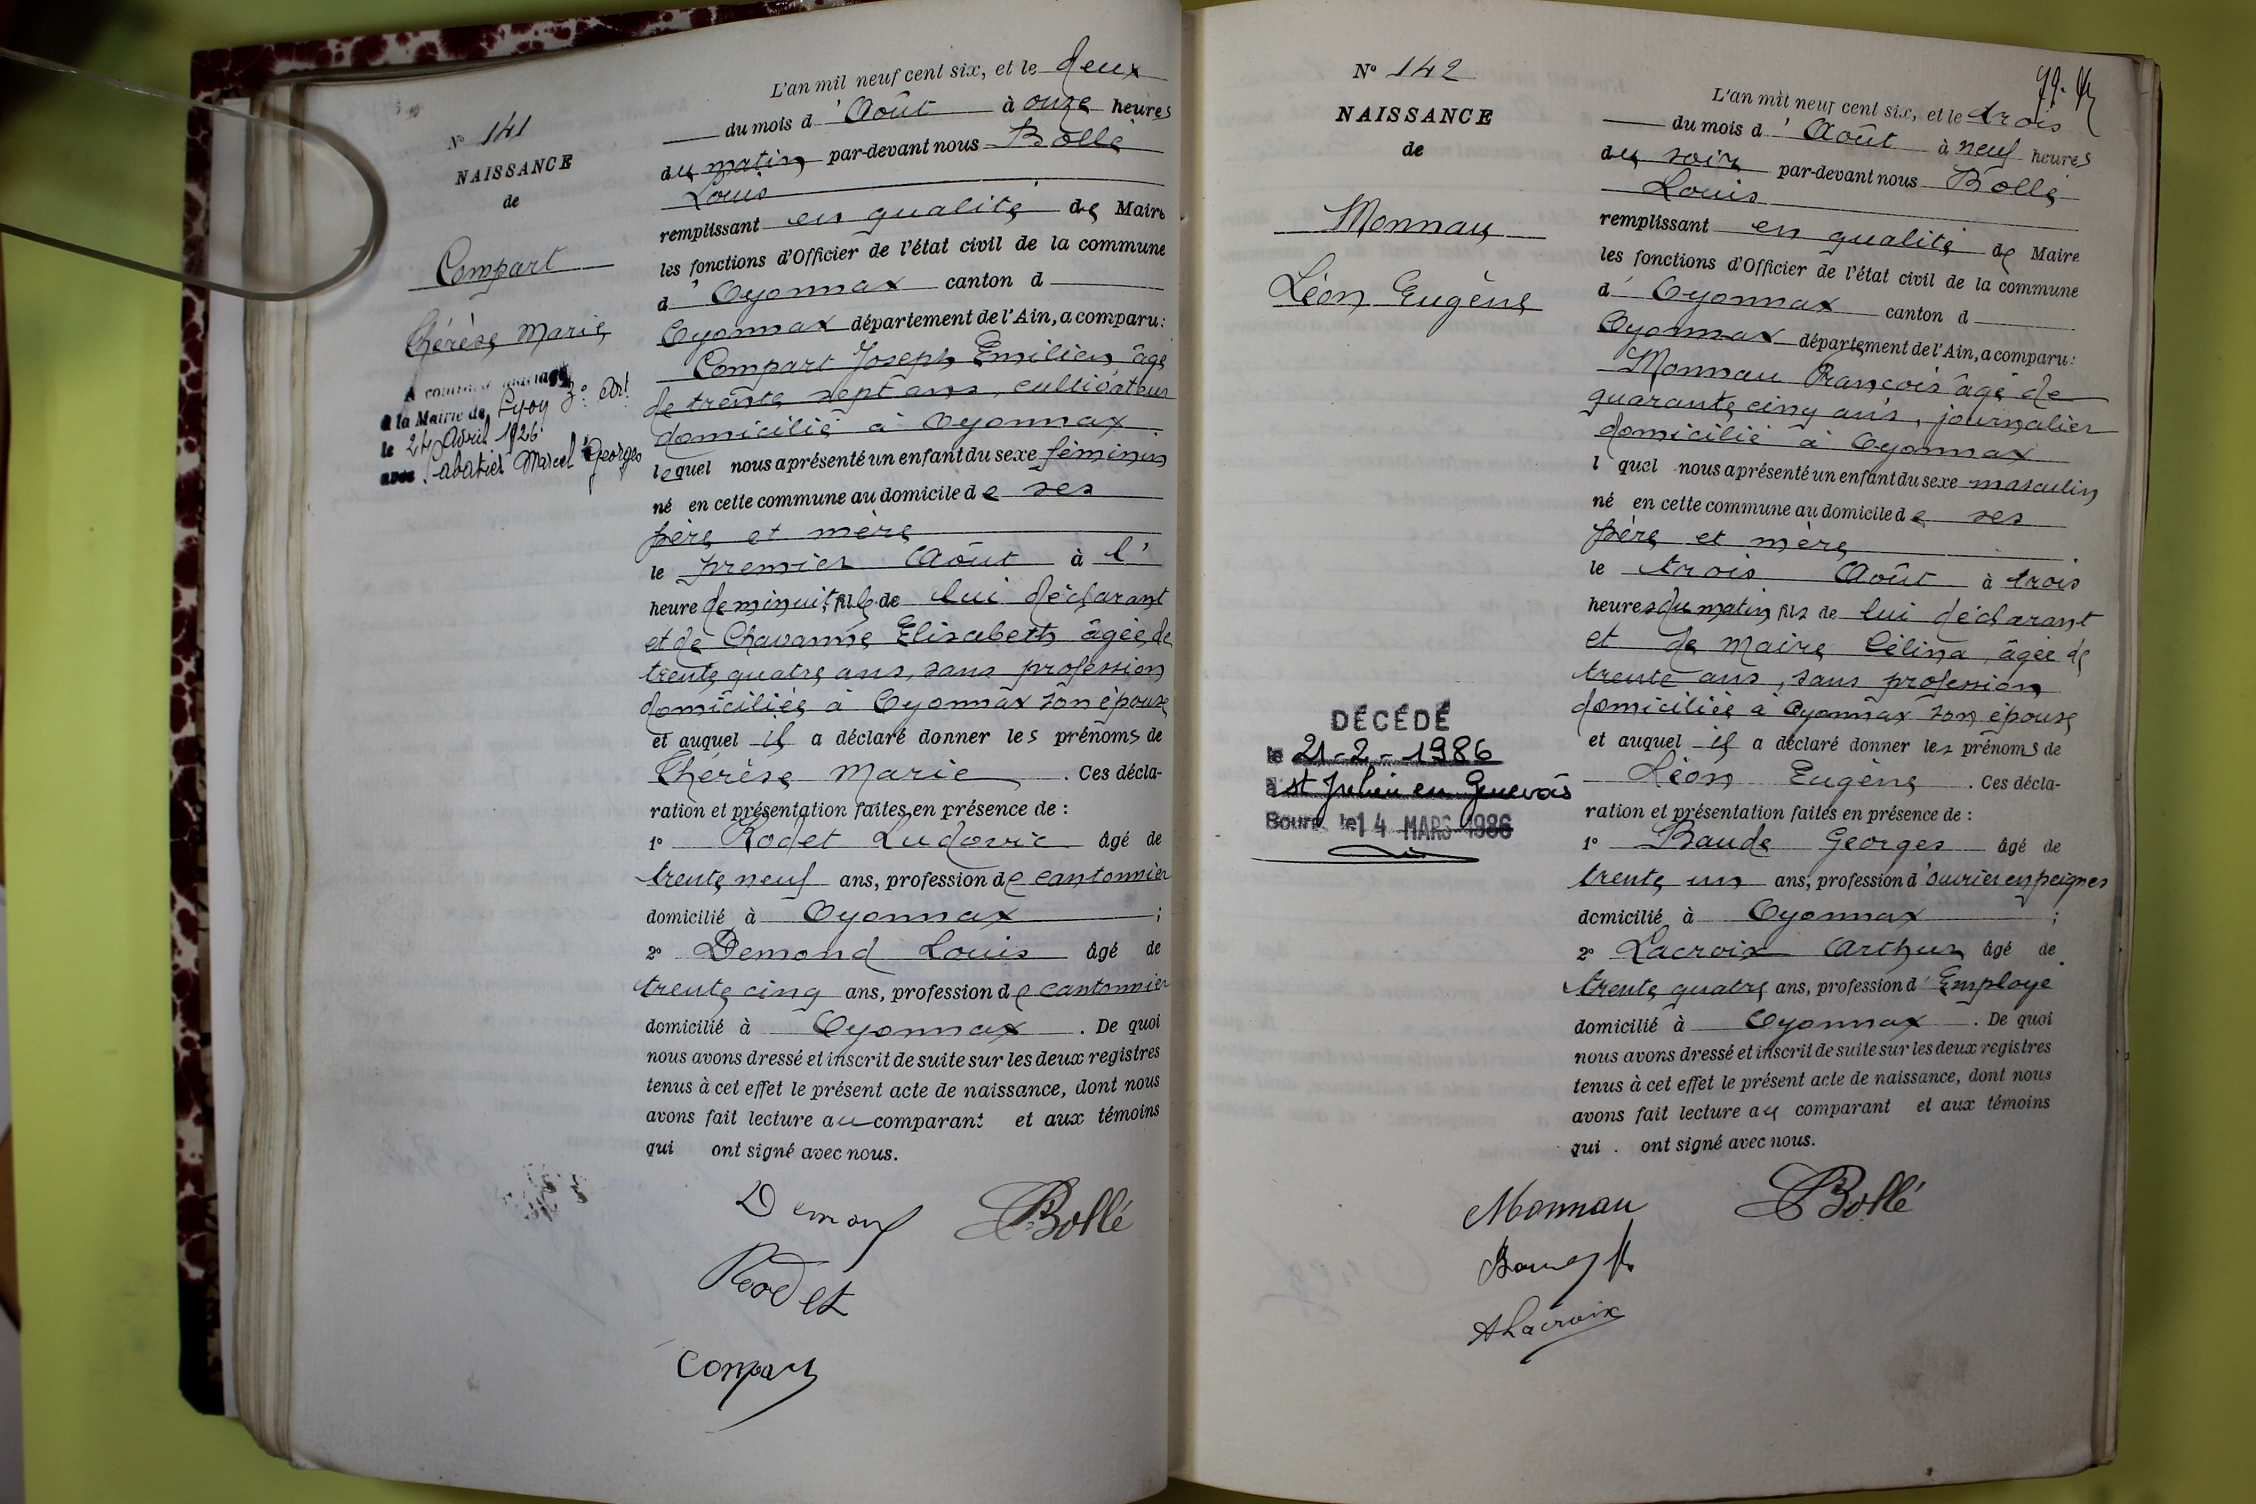 N° 141
NAISSANCE
de
Compart
Thérèse Marie
à la Mairie de Lyon 3e Arrt
le 24 Avril 1926
avec Sabatier Marcel Georges
L'an mil neuf cent six, et le deux
du mois d'Août à onze heures
du matin par-devant nous Bollé
Louis
remplissant en qualité de Maire
les fonctions d'Officier de l'état civil de la commune
d'Oyonnax canton d
Oyonnax département de l'Ain, a comparu:
Compart Joseph Emilien âgé
de trente sept ans, cultivateur
domicilié à Oyonnax
lequel nous a présenté un enfant du sexe féminin
né en cette commune au domicile de ses
père et mère
le premier Août à l'
heure de minuit, fille de lui déclarant
et de Chavanne Elisabeth âgée de
trente quatre ans, sans profession
domiciliée à Oyonnax son épouse
et auquel il a déclaré donner les prénoms de
Thérèse Marie. Ces décla-
ration et présentation faites en présence de :
1° Rodet Ludovic âgé de
trente neuf ans, profession de cantonnier
domicilié à Oyonnax ;
2° Demond Louis âgé de
trente cinq ans, profession de cantonnier
domicilié à Oyonnax. De quoi
nous avons dressé et inscrit de suite sur les deux registres
tenus à cet effet le présent acte de naissance, dont nous
avons fait lecture au comparant et aux témoins
qui ont signé avec nous.
Demond Bollé
Rodet
Compart
N° 142
NAISSANCE
de
Monnau
Léon Eugène
DÉCÉDÉ
le 21-2-1986
à St Julien en Genevois
Bourg le 14 MARS 1986
L'an mil neuf cent six, et le trois
du mois d'Août à neuf heures
du soir par-devant nous Bollé
Louis
remplissant en qualité de Maire
les fonctions d'Officier de l'état civil de la commune
d'Oyonnax canton d
Oyonnax département de l'Ain, a comparu:
Monnau François âgé de
quarante cinq ans, journalier
domicilié à Oyonnax
l quel nous a présenté un enfant du sexe masculin
né en cette commune au domicile de ses
père et mère
le trois Août à trois
heures du matin, fils de lui déclarant
et de Maire Célina, âgée de
trente ans, sans profession
domiciliée à Oyonnax son épouse
et auquel il a déclaré donner les prénoms de
Léon Eugène. Ces décla-
ration et présentation faites en présence de :
1° Baude Georges âgé de
trente un ans, profession d'ouvrier en peignes
domicilié à Oyonnax ;
2° Lacroix Arthur âgé de
trente quatre ans, profession d'Employé
domicilié à Oyonnax. De quoi
nous avons dressé et inscrit de suite sur les deux registres
tenus à cet effet le présent acte de naissance, dont nous
avons fait lecture au comparant et aux témoins
qui ont signé avec nous.
Monnau Bollé
ALacroix